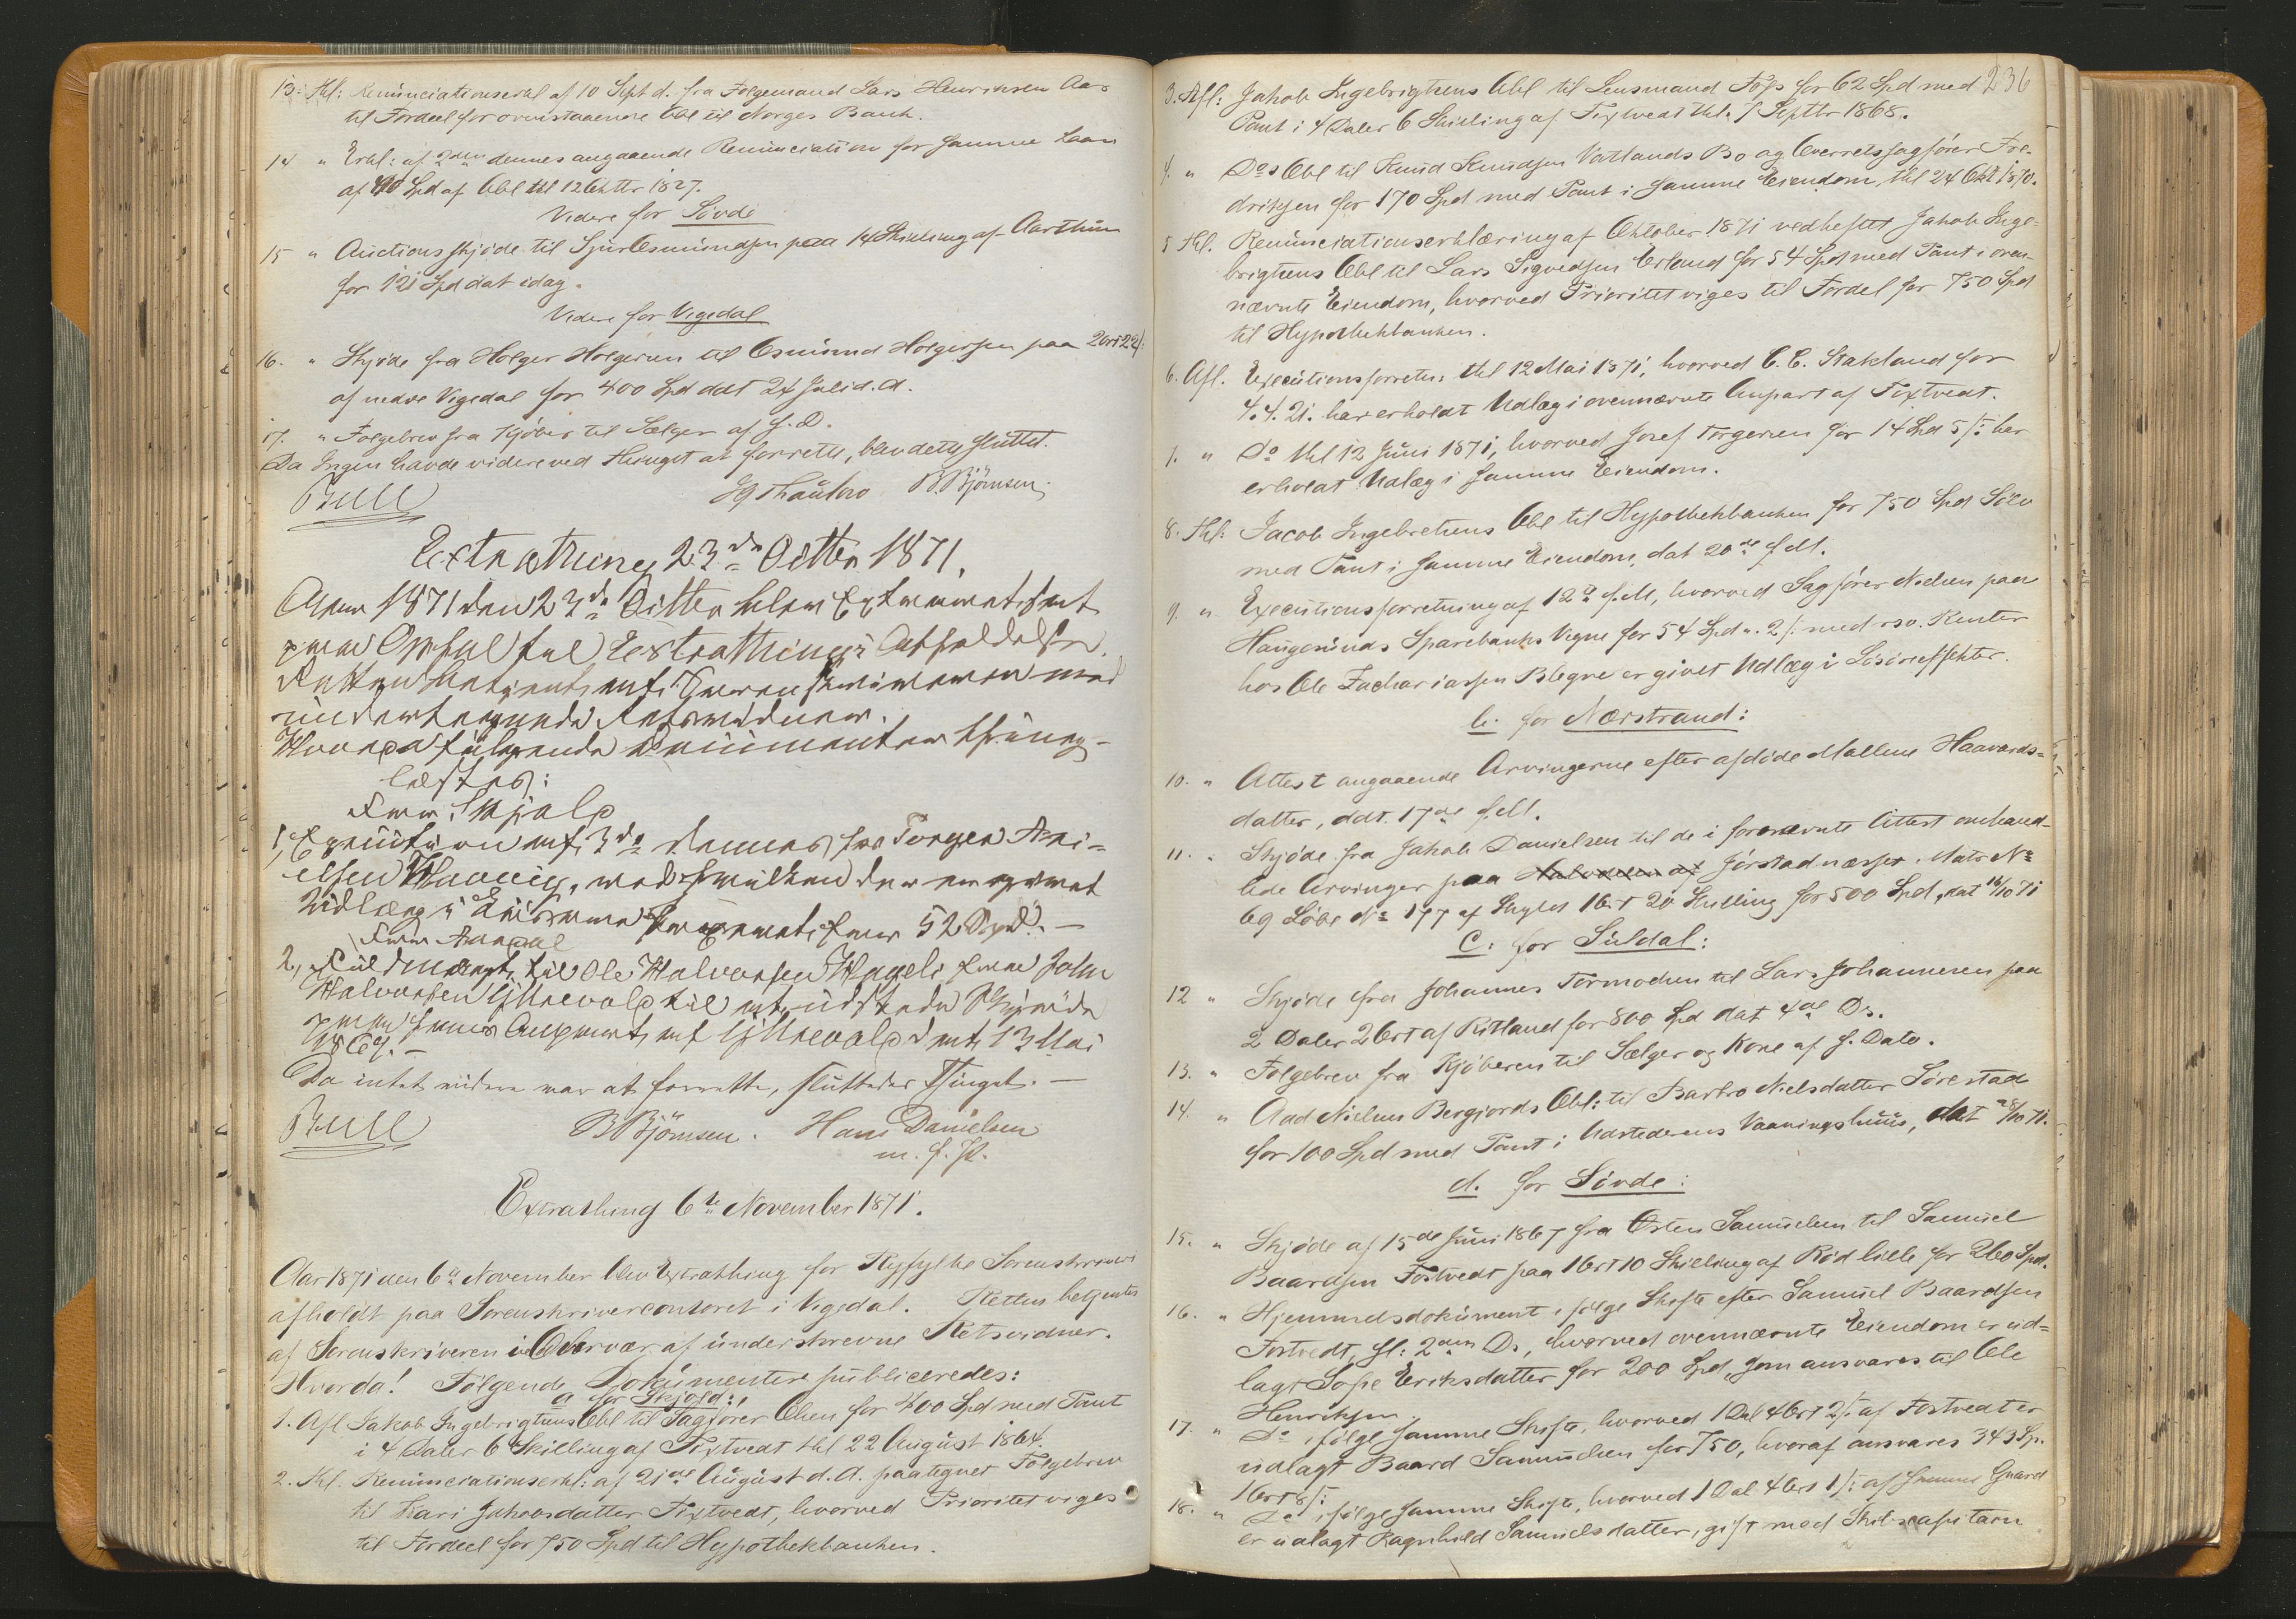 13: Thl: Renünciationserkl af 10 Sept d. fra Følgemand Lars Henriksen Aa-
til Fordeel for ovenstaaende Obl til Norges Bank.
14 " Erkl: af 2den dennes angaaende Renünciation for samme Laan
af 40 Spd af Obl thl 12 Oktbr 1827.
Videre for Søvde
15 " Auctionsskjøde til Sjur Osmündsen paa 14 Skilling af Aarthün
for 121 Spd dat idag.
Videre for Vigedal
16. " Skjøde fra Holger Holgersen til Osmünd Holgersen paa 2 Ort 22 /:
af nedre Vigedal for 400 Spd ddt 24 Juli d.A.
17. " Følgebrev fra Kjøber til Sælger af s.D.
Da Ingen havde videre ved Thinget at forrette, blev dette slüttet.
Büll Jg Thaülow B. Bjørnsen.
Extrathing 23de Octbr 1871.
Aar 1871 den 23de Octbr blev Extraret sat
paa Opsal ful Extrathings Afholdelse.
Retten betjent af Sorenskriveren med
ündertegnede Retsvidner.
Hvorpaa fülgende Documenter thing-
læstes:
For Skjold
1, Execütion af 3de dennes fra Torger Ari-
elsen Haavig, ved hvilken der er gjort
Üdlæg i for 52 Spd. —
For Aardal
2, Füldmagt til Ole Halvorsen Hageli fra John
Halvorsen Ljthrevold til at üdstede Skjøde
paa hans Anpart af Ljthrevold dat 13 Mai
1869. —
Da intet videre var at forrette, slüttedes Thinget. —
Büll B Bjørnsen. Hans Danielsen
m. f. P.
Extrathing 6te November 1871.
Aar 1871 den 6te November blev Extrathing for Ryfylke Sorenskriveri
afholdt paa Sorenskrivercontoret i Vigedal. Retten betjentes
af Sorenskriveren i Overvær af ünderskrevne Retsvidner.
Hvorda! Følgende Dokümenter publiceredes:
a for Skjold:
1. Afl Jakob Ingebrigtsens Obl til Sagfører Olsen for 400 Spd med Pant
i 4 Daler 6 Skilling af Tixtvedt thl 22 Aügüst 1864.
2. Thl. Renünciationserkl: af 21de Aügüst d.A. paategnet Følgebrev
til Kari Jakobsdatter Tixtvedt, hvorved Prioritet viges
til Fordeel for 750 Spd til Hypothekbanken.
236
3. Afl: Jakob Ingebrigtsens Obl til Lensmand Foss for 62 Spd med
Pant i 4 Daler 6 Skilling af Tixtvedt thl. 7 Septbr 1868.
4. " Dos Obl til Knud Knudsen Vatlands Bo og Overretssagfører Fre-
driksen for 170 Spd med Pant i samme Eiendom, thl 24 Okt 1870.
5 Thl. Renünciationserklæring af Oktober 1871 vedheftet Jakob Inge-
brigtsens Obl til Lars Sigvedsen Erland for 54 Spd med Pant i oven-
nævnte Eiendom, hvorved Prioritet viges til Fordel for 750 Spd
til Hypothekbanken.
6. Afl. Execütionsforretn: thl 12 Mai 1871, hvorved C. C. Stakland for
4. 4. 21. har erholdt Udlæg i ovennævnte Anpart af Tixtvedt.
7. " Do thl 12 Jüni 1871, hvorved Josef Torgersen for 14 Spd 5 /: har
erholdt Udlæg i samme Eiendom.
8. Thl: Jacob Ingebretsens Obl til Hypothekbanken for 750 Spd Sølv
med Pant i samme Eiendom, dat 20de f.M.
9. " Execütionsforretning af 12te f.M, hvorved Sagfører Nielsen paa
Haugesünds Sparebanks Vegne for 54 Spd " 2 /: med oso. Renter
hos Ole Zachariassen Blegne er givet Udlæg i Løsøreeffekter.
b. for Nærstrand:
10. " Attest angaaende Arvingerne efter afdøde Mallene Haavards-
datter, ddt. 17de f.M.
11. " Skjøde fra Jakob Danielsen til de i forenævnte Attest omhand-
lede Arvinger paa Halvdelen af Jørstadnæsset. Matr No
69 Løbe No 177 af Skyld 1 Ort 20 Skilling for 500 Spd, dat 16/10 71
C: for Süldal:
12 " Skjøde fra Johannes Tormodsen til Lars Johannesen paa
2 Daler 2 Ort af Ritland for 800 Spd dat 4de Ds.
13. " Følgebrev fra Kjøberen til Sælger og Kone af s. Dato.
14. " Aad Nielsens Bergjords Obl: til Barbro Nielsdatter Sørestad
for 100 Spd med Pant i Udstederens Vaaningshüüs, dat 28/10 71.
d. for Søvde:
15. " Skjøde af 15de Jüni 1867 fra Østen Samüelsen til Samüel
Baardsen Fostvedt paa 1 Ort 10 Skilling af Rød lille for 260 Spd.
16. " Hjemmelsdoküment, ifølge Skifte efter Samüel Baardsen
Fostvedt, sl: 2den Ds, hvorved ovennævnte Eiendom er ud-
lagt Sofie Eriksdatter for 200 Spd, som ansvares til Ole
Henriksen.
17. " Do, ifølge samme Skifte, hvorved 1 Dal 4 Ort 2 /: af Fostvedt er
udlagt Baard Samüelsen for 750, hvoraf ansvares 343 Sp.
1 Ort 8 /:
18. " Do, ifølge samme Skifte, hvorved 1 Dal 4 Ort 1 /: af samme Gaard
er udlagt Ragnhild Samüelsdatter, gift med Skibscapitain